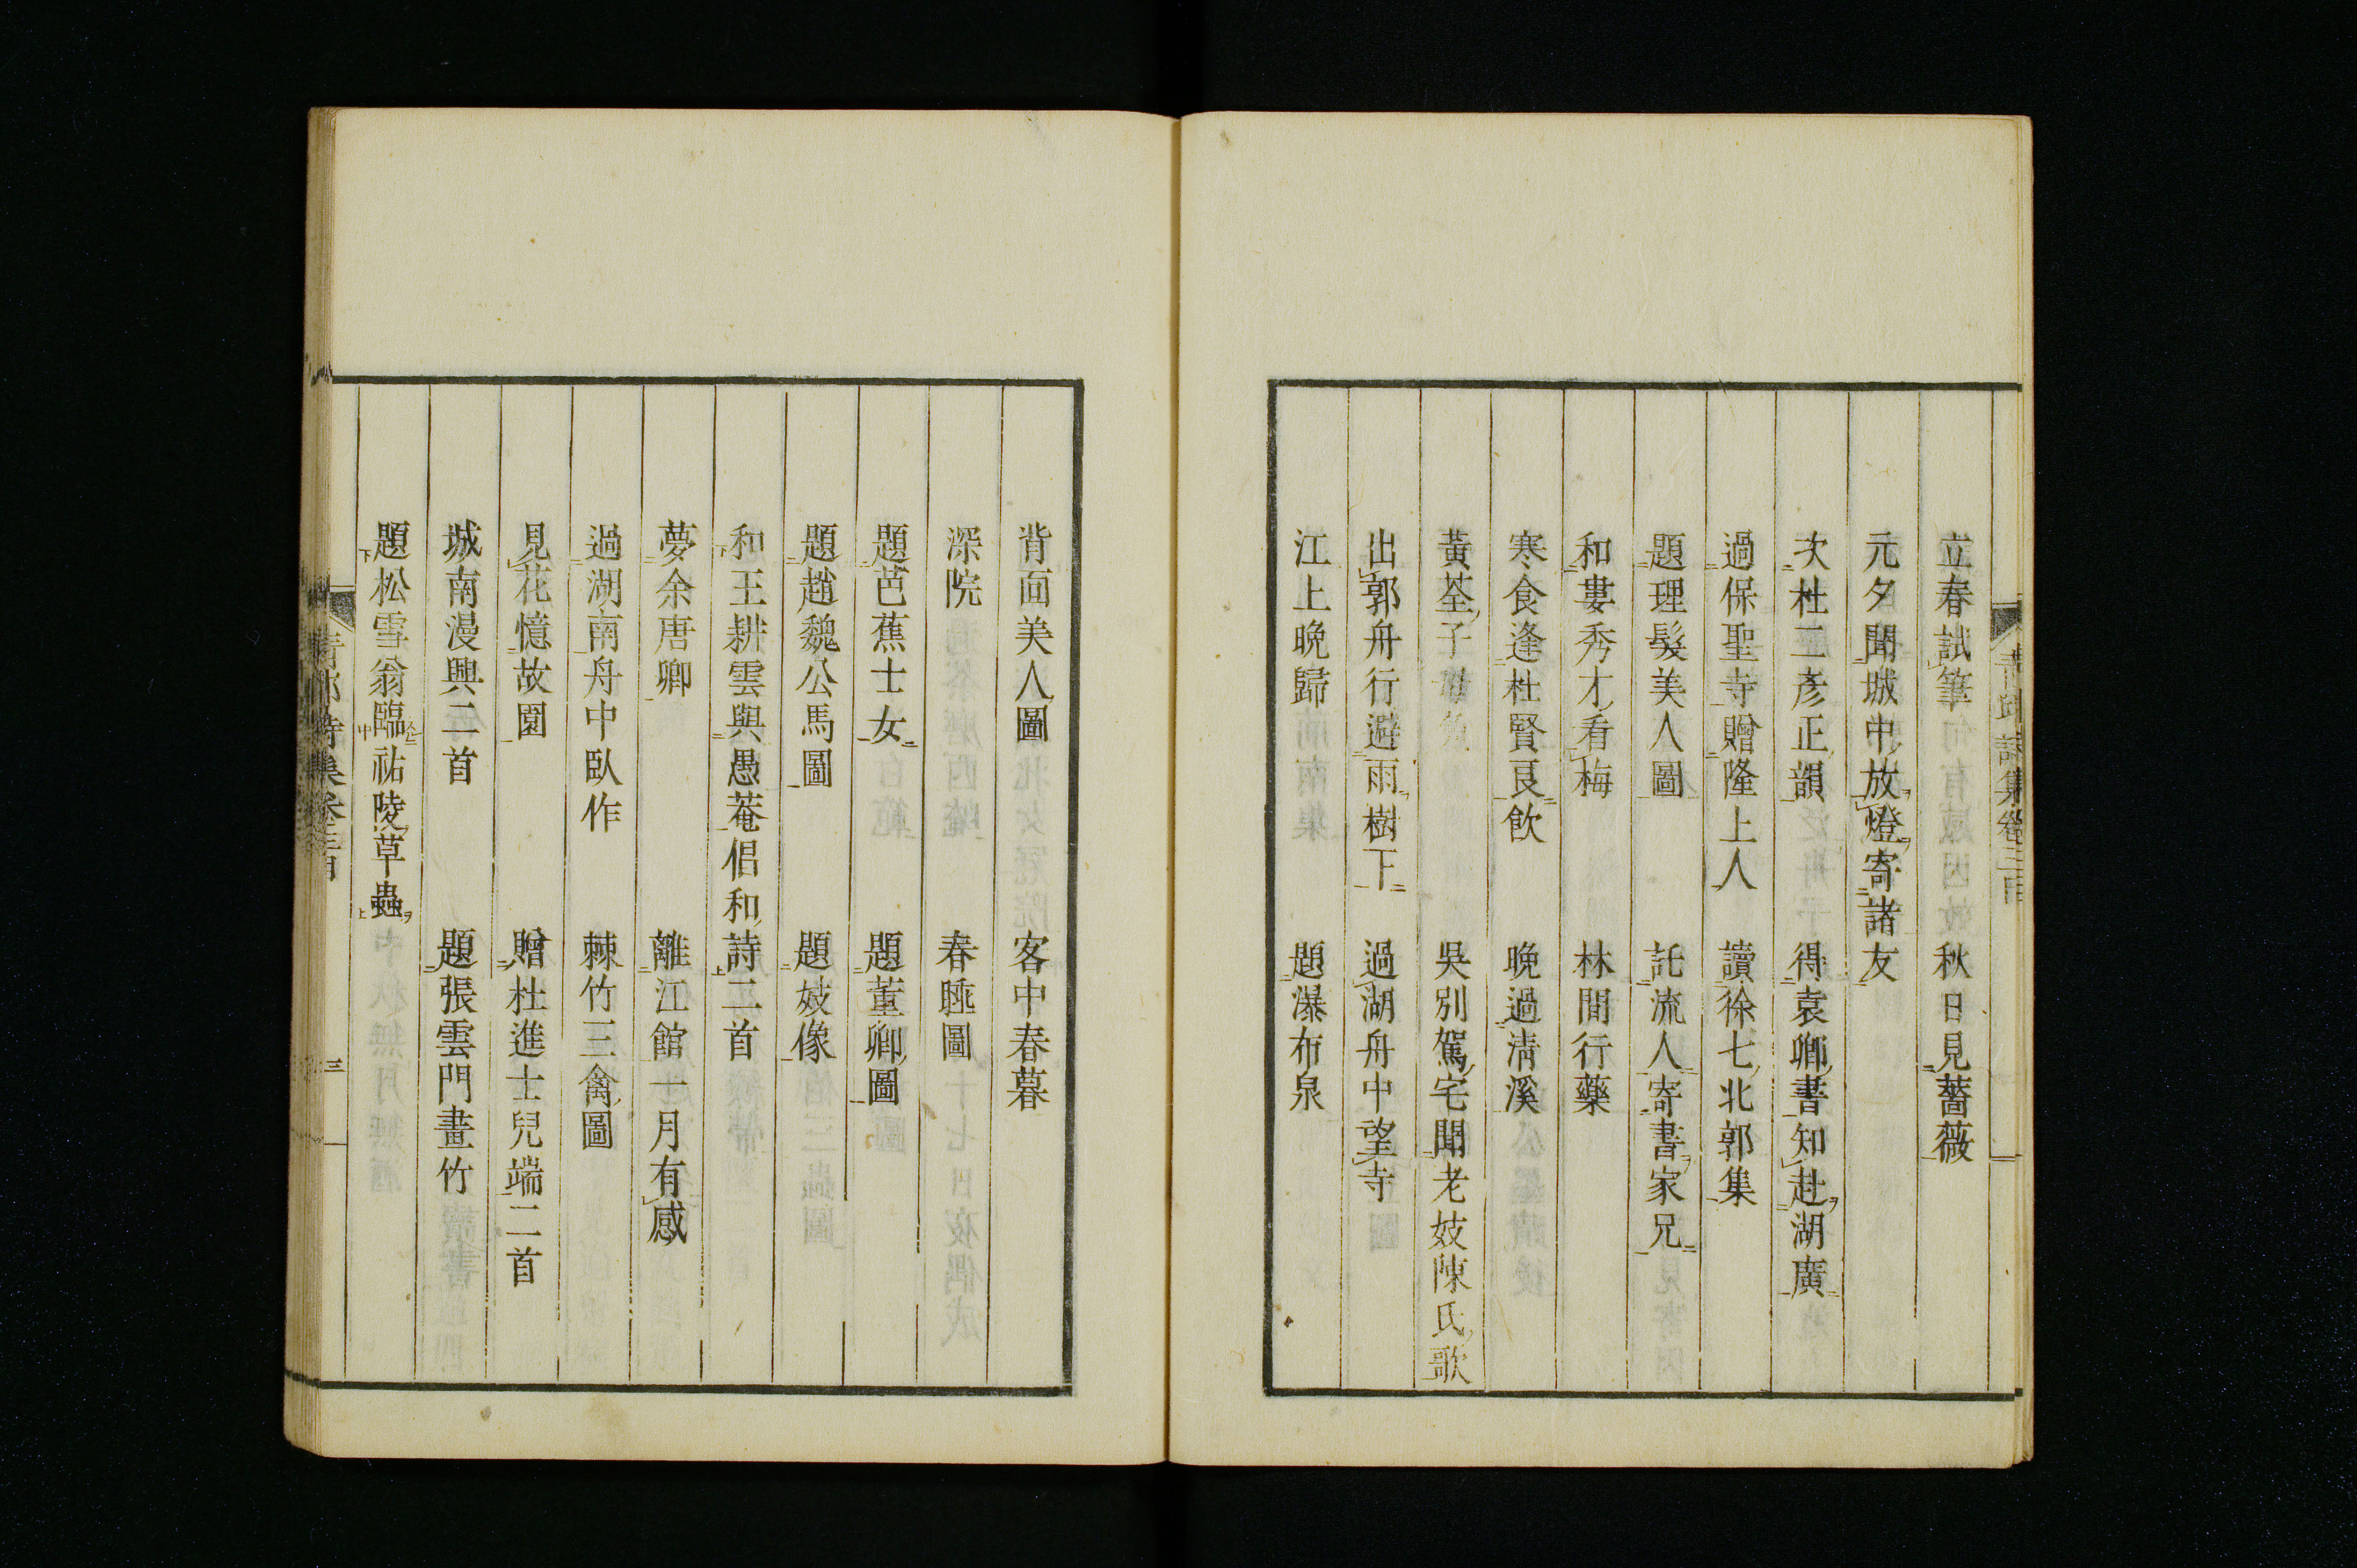 立春試筆 秋日見薔薇
元夕聞城中放燈寄諸友
次杜二彥正韻 得袁卿書知赴湖廣
過保聖寺贈隆上人 讀徐七北郭集
題理髮美人圖 託流人寄書家兄
和婁秀才看梅 林間行藥
寒食逢杜賢良飲 晚過清溪
黃荃子母兔 吳別駕宅聞老妓陳氏歌
出郭舟行避雨樹下 過湖舟中望寺
江上晚歸 題瀑布泉
背面美人圖 客中春暮
深院 春睡圖
題芭蕉士女 題董卿圖
題趙魏公馬圖 題妓像
和王耕雲與愚菴倡和詩二首
夢余唐卿 離江館一月有感
過湖南舟中臥作 棘竹三禽圖
見花憶故園 贈杜進士兒端二首
城南漫興二首 題張雲門畫竹
題松雪翁臨祐陵草蟲
三